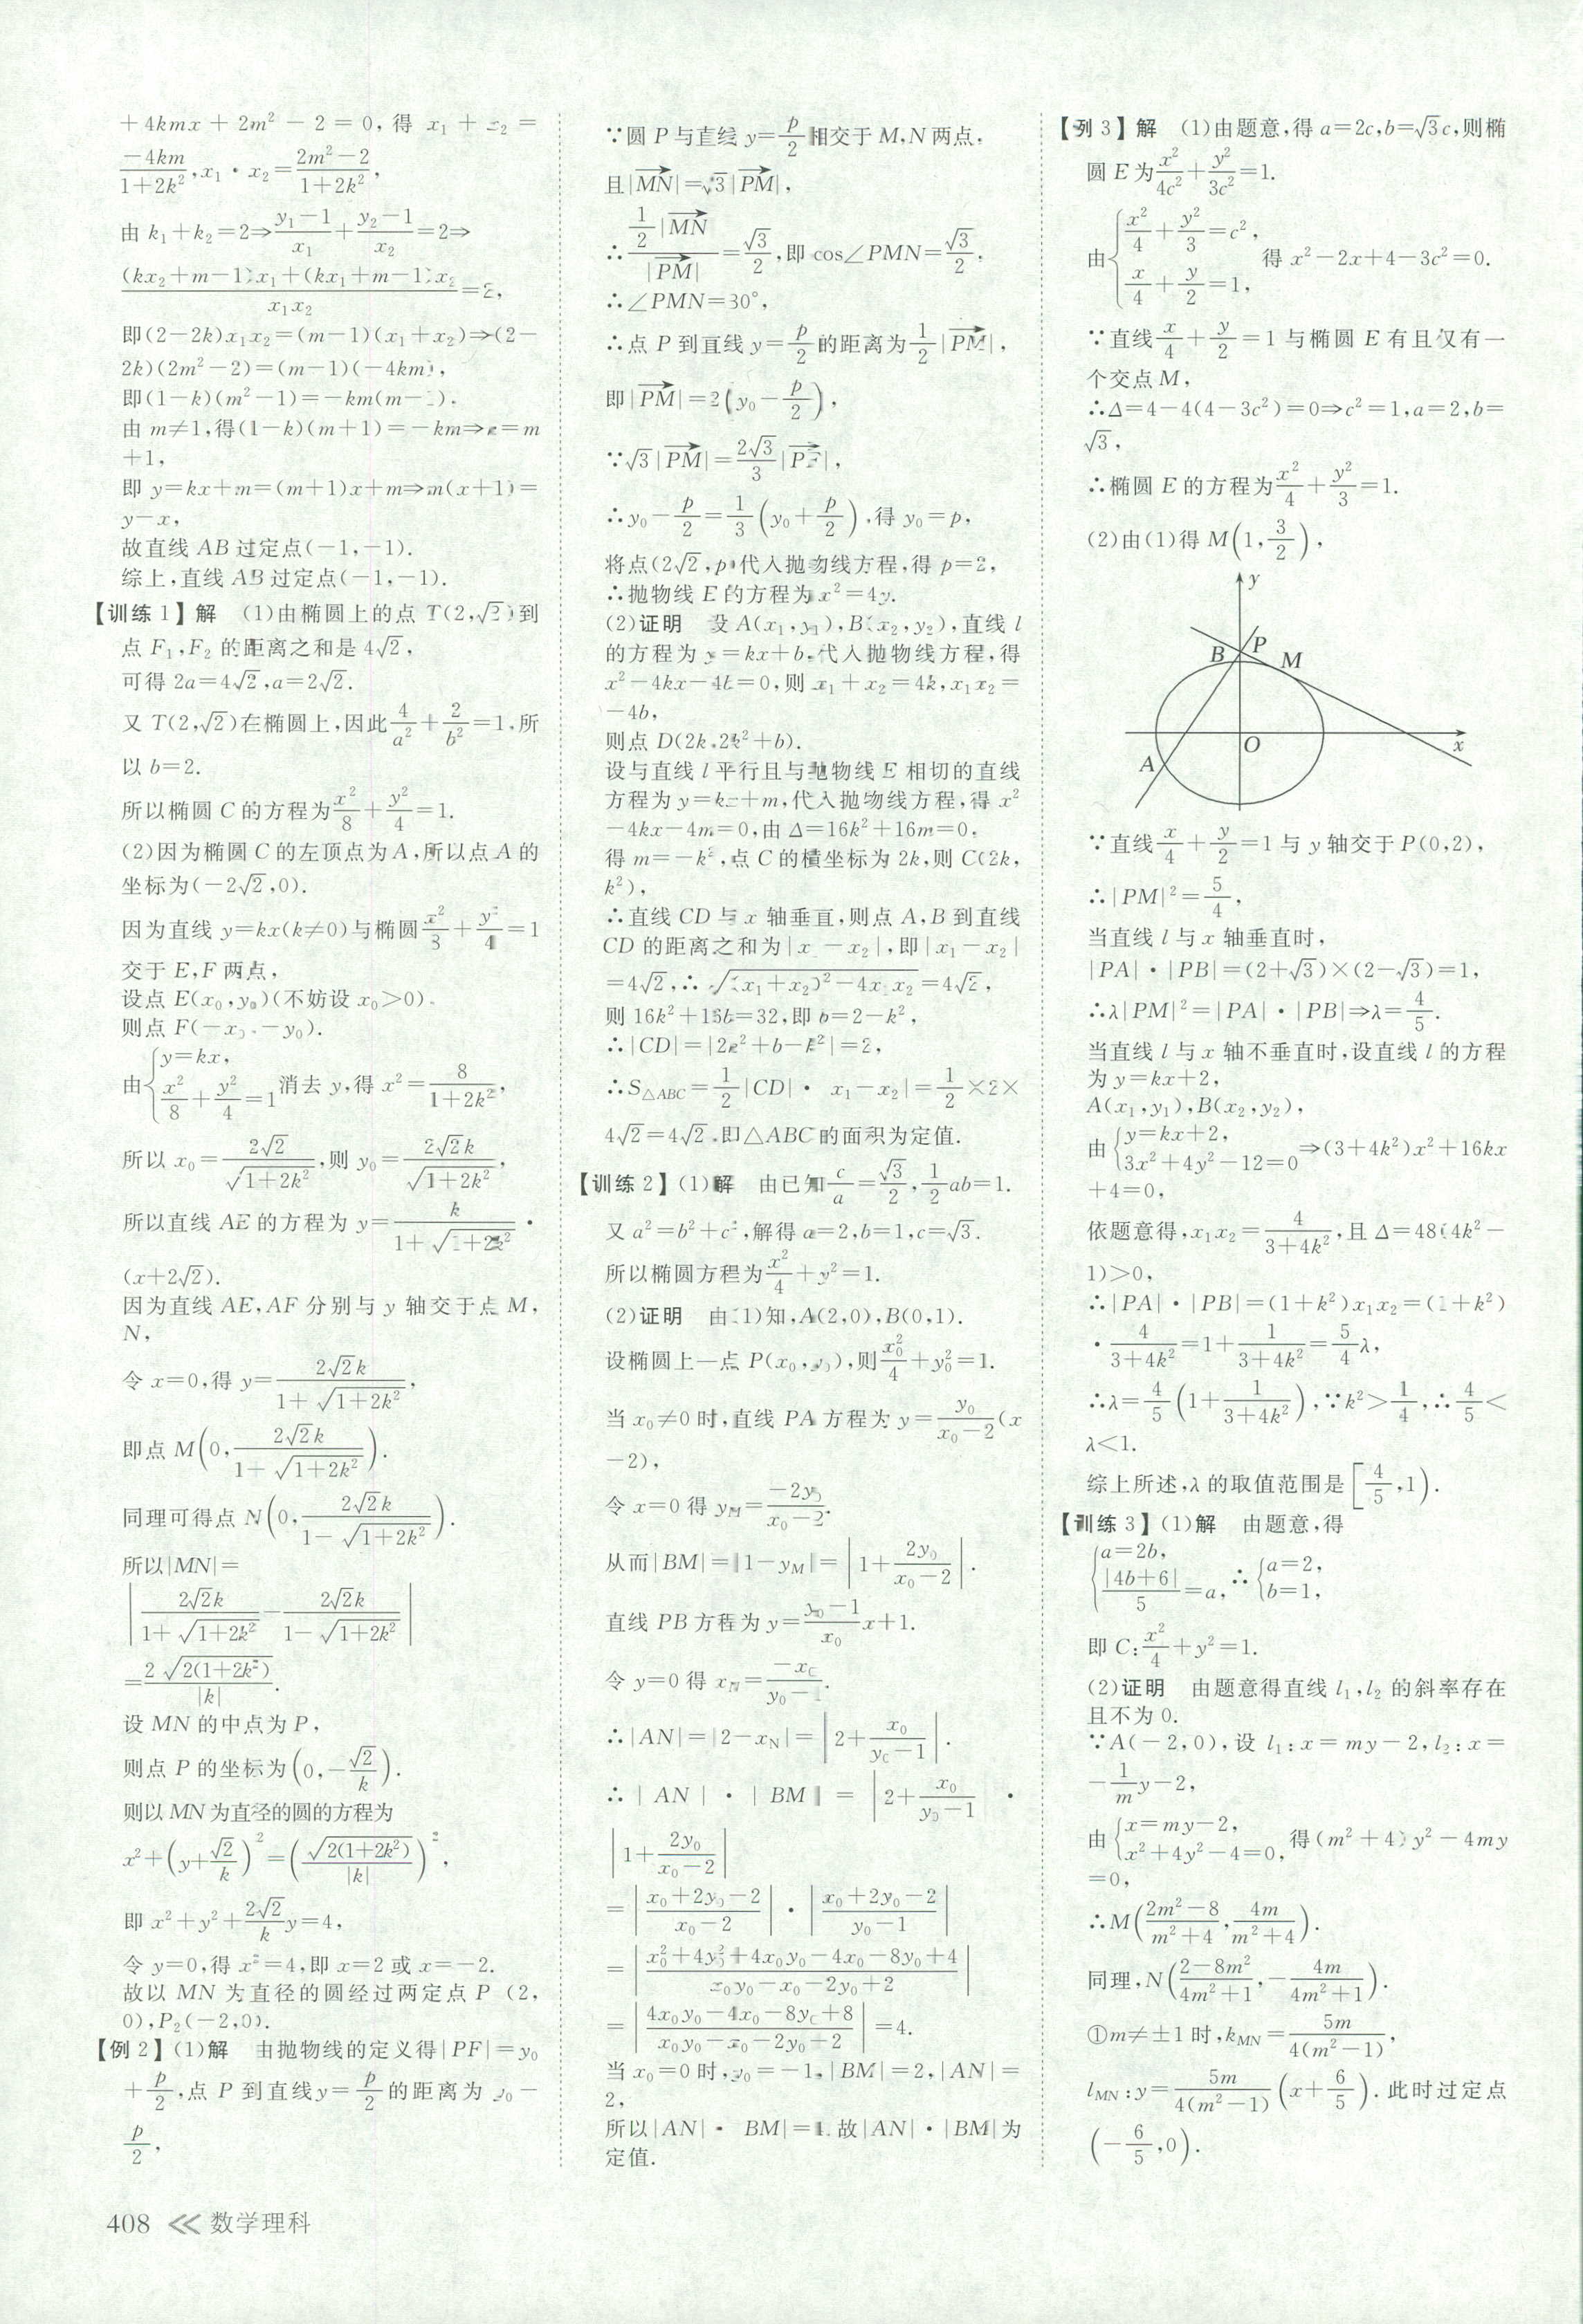 +4kmx+2m²-2=0,得 x₁+x₂=
-4km/(1+2k²),x₁·x₂=(2m²-2)/(1+2k²),
由 k₁+k₂=2⇒(y₁-1)/x₁+(y₂-1)/x₂=2⇒
((kx₂+m-1)x₁+(kx₁+m-1)x₂)/(x₁x₂)=2,
即(2-2k)x₁x₂=(m-1)(x₁+x₂)⇒(2-
2k)(2m²-2)=(m-1)(-4km),
即(1-k)(m²-1)=-km(m-1).
由 m≠1,得(1-k)(m+1)=-km⇒k=m
+1,
即 y=kx+m=(m+1)x+m⇒m(x+1)=
y-x,
故直线 AB 过定点(-1,-1).
综上,直线 AB 过定点(-1,-1).
【训练1】解 (1)由椭圆上的点 T(2,√2)到
点 F₁,F₂ 的距离之和是 4√2,
可得 2a=4√2,a=2√2.
又 T(2,√2)在椭圆上,因此4/a²+2/b²=1,所
以 b=2.
所以椭圆 C 的方程为x²/8+y²/4=1.
(2)因为椭圆 C 的左顶点为 A,所以点 A 的
坐标为(-2√2,0).
因为直线 y=kx(k≠0)与椭圆x²/8+y²/4=1
交于 E,F 两点,
设点 E(x₀,y₀)(不妨设 x₀>0).
则点 F(-x₀,-y₀).
由{y=kx, x²/8+y²/4=1 消去 y,得 x²=8/(1+2k²),
所以 x₀=2√2/√(1+2k²),则 y₀=2√2k/√(1+2k²),
所以直线 AE 的方程为 y=k/(1+√(1+2k²))·
(x+2√2).
因为直线 AE,AF 分别与 y 轴交于点 M,
N,
令 x=0,得 y=2√2k/(1+√(1+2k²)),
即点 M(0,2√2k/(1+√(1+2k²))).
同理可得点 N(0,2√2k/(1-√(1+2k²))).
所以|MN|=
|2√2k/(1+√(1+2k²))-2√2k/(1-√(1+2k²))|
=2√(2(1+2k²))/|k|.
设 MN 的中点为 P,
则点 P 的坐标为(0,-√2/k).
则以 MN 为直径的圆的方程为
x²+(y+√2/k)²=(√(2(1+2k²))/|k|)²,
即 x²+y²+(2√2/k)y=4,
令 y=0,得 x²=4,即 x=2 或 x=-2.
故以 MN 为直径的圆经过两定点 P (2,
0),P₂(-2,0).
【例2】(1)解 由抛物线的定义得|PF|=y₀
+p/2,点 P 到直线y=p/2的距离为 y₀-
p/2,
∵圆 P 与直线 y=p/2相交于 M,N 两点,
且|MN→|=√3|PM→|,
∴(1/2|MN→)/|PM→|=√3/2,即 cos∠PMN=√3/2,
∴∠PMN=30°,
∴点 P 到直线 y=p/2的距离为1/2|PM→|,
即|PM→|=2(y₀-p/2),
∵√3|PM→|=(2√3/3)|PF→|,
∴y₀-p/2=1/3(y₀+p/2),得 y₀=p,
将点(2√2,p)代入抛物线方程,得 p=2,
∴抛物线 E 的方程为 x²=4y.
(2)证明 设 A(x₁,y₁),B(x₂,y₂),直线 l
的方程为 y=kx+b,代入抛物线方程,得
x²-4kx-4b=0,则 x₁+x₂=4k,x₁x₂=
-4b,
则点 D(2k,2k²+b).
设与直线 l 平行且与抛物线 E 相切的直线
方程为 y=kx+m,代入抛物线方程,得 x²
-4kx-4m=0,由 Δ=16k²+16m=0,
得 m=-k²,点 C 的横坐标为 2k,则 C(2k,
k²),
∴直线 CD 与 x 轴垂直,则点 A,B 到直线
CD 的距离之和为|x -x₂|,即|x₁-x₂|
=4√2,∴√((x₁+x₂)²-4x₁x₂)=4√2,
则 16k²+16b=32,即 b=2-k²,
∴|CD|=|2k²+b-k²|=2,
∴S△ABC=1/2|CD|· x₁-x₂|=1/2×2×
4√2=4√2,即△ABC 的面积为定值.
【训练2】(1)解 由已知c/a=√3/2,1/2ab=1.
又 a²=b²+c²,解得 a=2,b=1,c=√3.
所以椭圆方程为x²/4+y²=1.
(2)证明 由(1)知,A(2,0),B(0,1).
设椭圆上一点 P(x₀,y₀),则x₀²/4+y₀²=1.
当 x₀≠0 时,直线 PA 方程为 y=y₀/(x₀-2)(x
-2),
令 x=0 得 y_M=-2y₀/(x₀-2).
从而|BM|=|1-y_M|=|1+2y₀/(x₀-2)|.
直线 PB 方程为 y=((y₀-1)/x₀)x+1.
令 y=0 得 x_N=-x₀/(y₀-1).
∴|AN|=|2-x_N|=|2+x₀/(y₀-1)|.
∴|AN|·|BM|=|2+x₀/(y₀-1) ·
|1+2y₀/(x₀-2)|
=|(x₀+2y₀-2)/(x₀-2)|·|(x₀+2y₀-2)/(y₀-1)|
=|(x₀²+4y₀²+4x₀y₀-4x₀-8y₀+4)/(x₀y₀-x₀-2y₀+2)|
=|(4x₀y₀-4x₀-8y₀+8)/(x₀y₀-x₀-2y₀+2)|=4.
当 x₀=0 时,y₀=-1,|BM|=2,|AN|=
2,
所以|AN|· BM|=4.故|AN|·|BM|为
定值.
【例3】解 (1)由题意,得 a=2c,b=√3c,则椭
圆 E 为x²/4c²+y²/3c²=1.
由{x²/4+y²/3=c², x/4+y/2=1, 得 x²-2x+4-3c²=0.
∵直线x/4+y/2=1 与椭圆 E 有且仅有一
个交点 M,
∴Δ=4-4(4-3c²)=0⇒c²=1,a=2,b=
√3,
∴椭圆 E 的方程为x²/4+y²/3=1.
(2)由(1)得 M(1,3/2),
y
B P M
O x
A
∵直线x/4+y/2=1 与 y 轴交于 P(0,2),
∴|PM|²=5/4,
当直线 l 与 x 轴垂直时,
|PA|·|PB|=(2+√3)×(2-√3)=1,
∴λ|PM|²=|PA|·|PB|⇒λ=4/5.
当直线 l 与 x 轴不垂直时,设直线 l 的方程
为 y=kx+2,
A(x₁,y₁),B(x₂,y₂),
由{y=kx+2, 3x²+4y²-12=0⇒(3+4k²)x²+16kx
+4=0,
依题意得,x₁x₂=4/(3+4k²),且 Δ=48(4k²-
1)>0,
∴|PA|·|PB|=(1+k²)x₁x₂=(1+k²)
·4/(3+4k²)=1+1/(3+4k²)=5/4λ,
∴λ=4/5(1+1/(3+4k²)),∵k²>1/4,∴4/5<
λ<1.
综上所述,λ 的取值范围是[4/5,1).
【训练3】(1)解 由题意,得
{a=2b, |4b+6|/5=a, ∴{a=2, b=1,
即 C:x²/4+y²=1.
(2)证明 由题意得直线 l₁,l₂ 的斜率存在
且不为 0.
∵A(-2,0),设 l₁:x=my-2,l₂:x=
-1/m y-2,
由{x=my-2, x²+4y²-4=0, 得(m²+4)y²-4my
=0,
∴M((2m²-8)/(m²+4),4m/(m²+4)).
同理,N((2-8m²)/(4m²+1),-4m/(4m²+1)).
①m≠±1 时,k_MN=5m/(4(m²-1)),
l_MN:y=5m/(4(m²-1))(x+6/5).此时过定点
(-6/5,0).
408 ≪ 数学理科